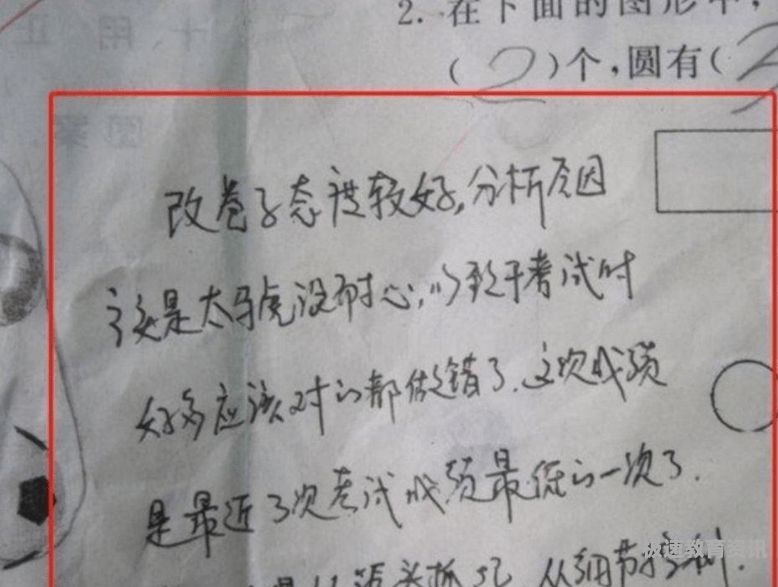 2. 在下面的图形中,
(2)个,圆有(3
改卷子态度较好,分析原因
应该是太马虎没耐心,以致于考试时
好多应该对的都做错了.这次成绩
是最近3次考试成绩最低的一次了.
从细节
极速教育资讯